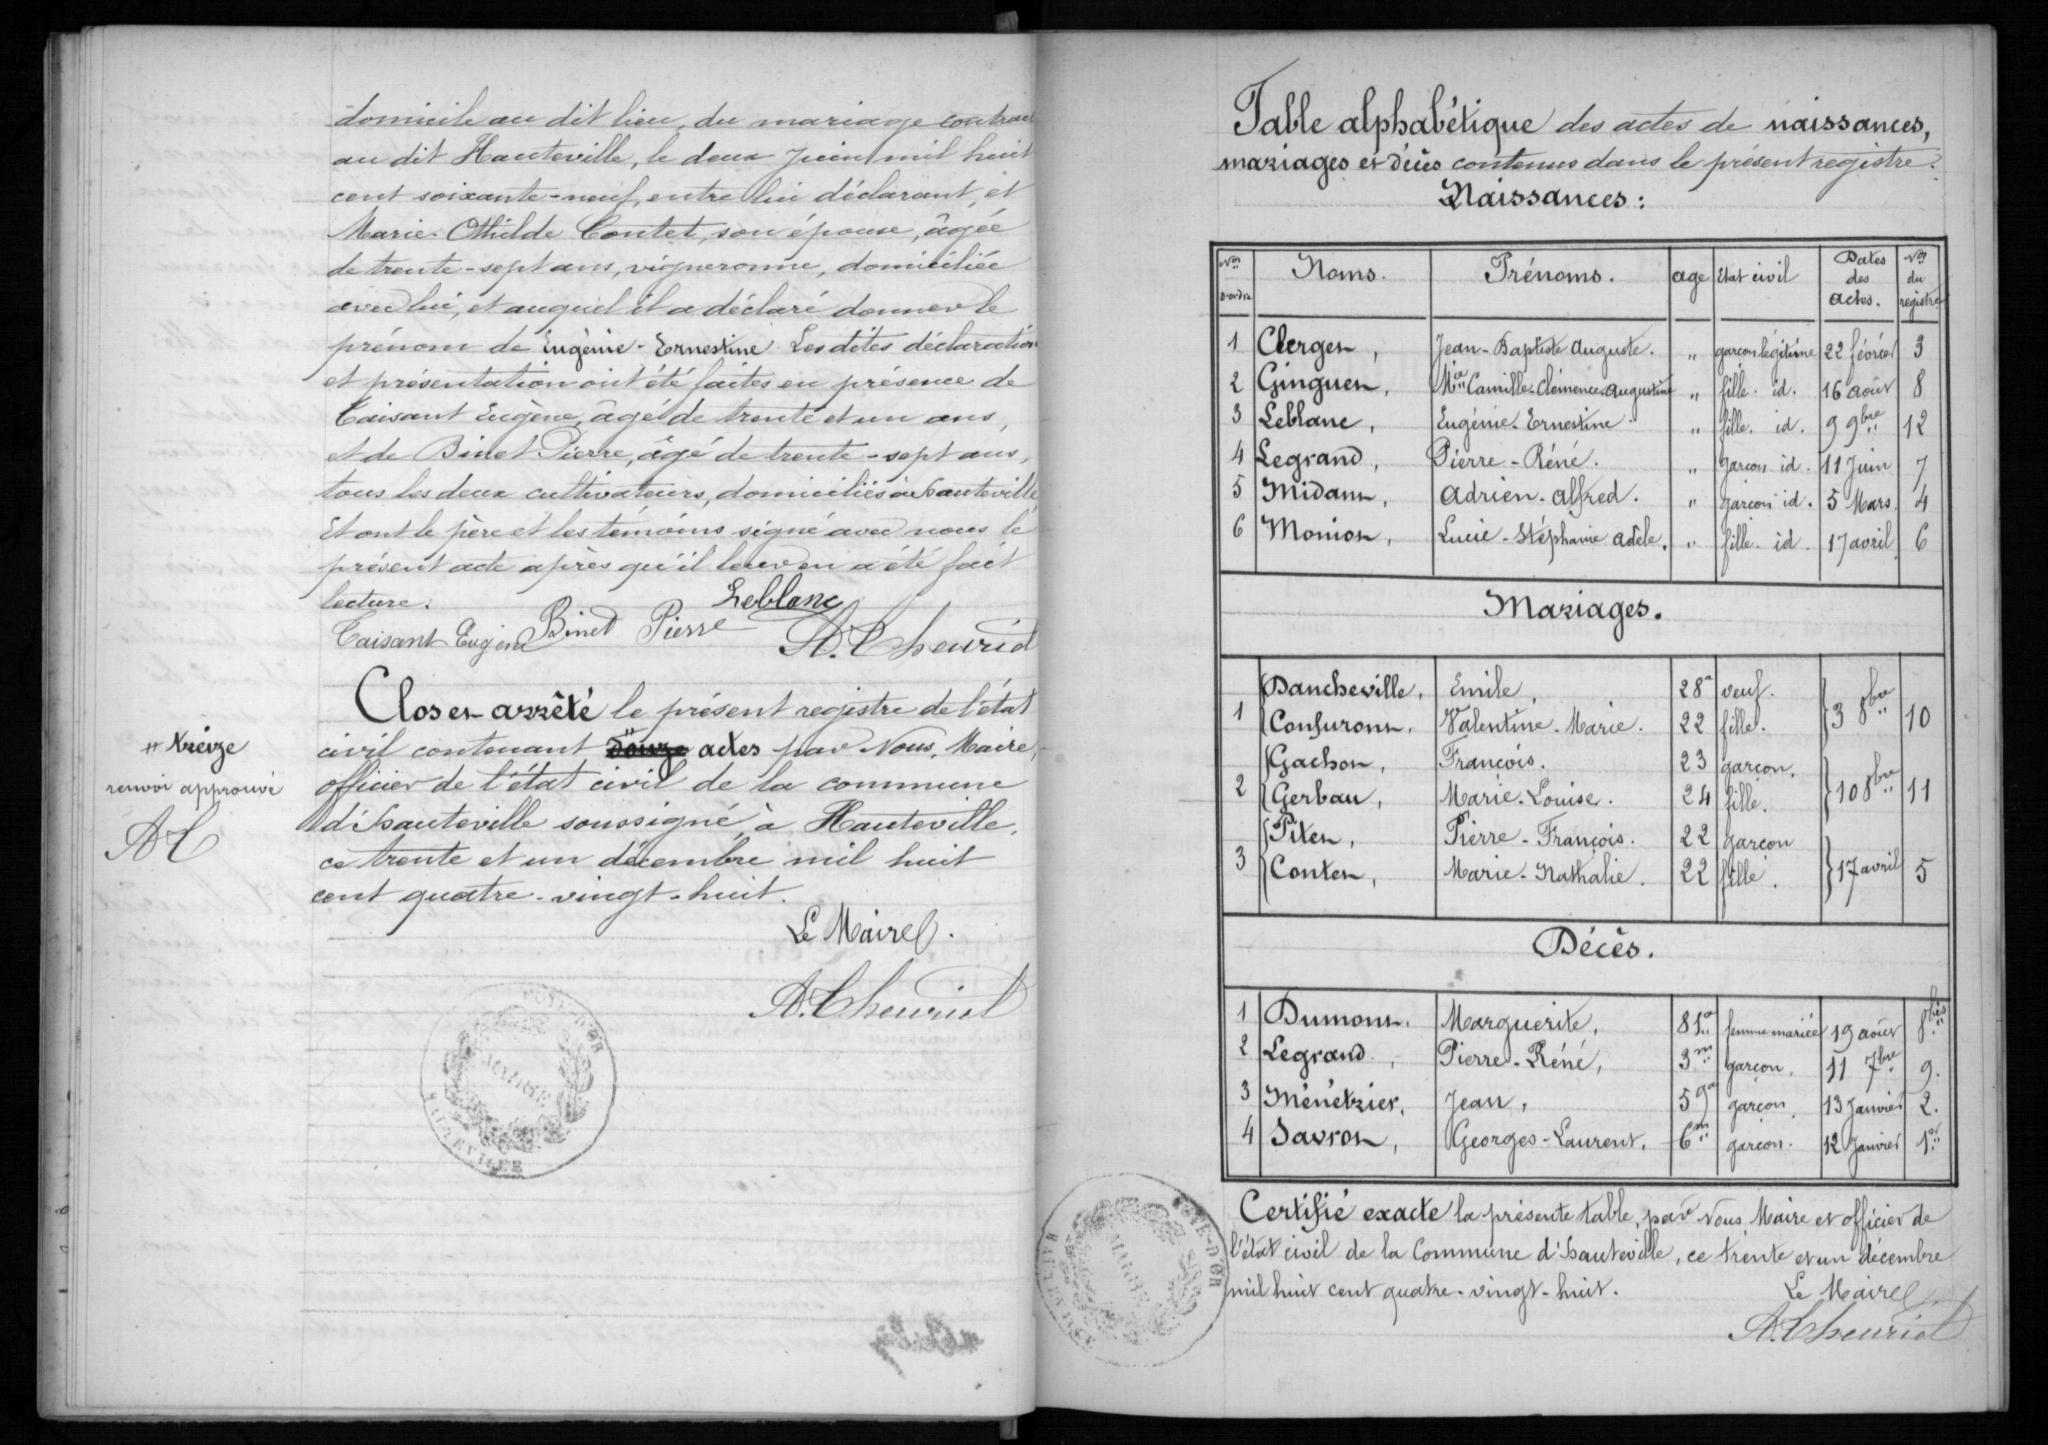 domicile au dit lieu, du mariage contracté
au dit Hauteville, le deux Juin mil huit
cent soixante-neuf, entre lui déclarant, et
Marie-Othilde Contet, son épouse, âgée
de trente-sept ans, vigneronne, domiciliée
avec lui, et auquel il a déclaré donner le
prénom de Eugénie-Ernestine. Les dites déclaration
et présentation ont été faites en présence de
Taisant Eugène, âgé de trente et un ans,
et de Binet Pierre, âgé de trente-sept ans,
tous les deux cultivateurs, domiciliés à Hauteville
Et ont le père et les témoins signé avec nous le
présent acte après qu'il leur en a été fait
lecture.
Leblanc
Taisant Eugène Binet Pierre A. Theuriet
Clos et arrêté le présent registre de l'état
civil contenant douze actes par Nous, Maire,
officier de l'état civil de la commune
d'Hauteville soussigné, à Hauteville,
ce trente et un décembre mil huit
cent quatre-vingt-huit.
Le Maire.
A. Theuriet
# treize
renvoi approuvé
AT
MAIRIE
HAUTEVILLE
CÔTE-D'OR
Table alphabétique des actes de naissances,
mariages et décès contenus dans le présent registre.
Naissances:
Nos d'ordre Noms. Prénoms. age Etat civil Dates des actes. Nos du registre
1 Clerget, Jean-Baptiste Auguste. " garçon légitime 22 février 3
2 Ginguet, Mie Camille-Clémence-Augustine " fille id. 16 août 8
3 Leblanc, Eugénie-Ernestine " fille. id. 9 9bre 12
4 Legrand, Pierre-Réné. " garçon id. 11 Juin 7
5 Midant, Adrien-Alfred. " garçon id. 5 Mars. 4
6 Moniot, Lucie-Stéphanie Adèle. " fille. id. 17 avril 6
Mariages.
Dancheville, Emile, 28a veuf.
1 Confuron, Valentine-Marie. 22 fille. 3 8bre 10
Gachon, François. 23 garçon.
2 Gerbau, Marie-Louise. 24 fille. 10 8bre 11
Pitet, Pierre-François. 22 garçon
3 Contet, Marie-Nathalie. 22 fille. 17 avril 5
Décès.
1 Dumont, Marguerite, 81a femme mariée 19 août 8bis
2 Legrand, Pierre-Réné, 3m garçon, 11 7bre 9.
3 Ménétrier, Jean, garçon 13 Janvier 2.
4 Savrot, Georges-Laurent, 6m garçon. 12 Janvier 1er
Certifié exacte la présente table, par Nous Maire et officier de
l'état civil de la Commune d'Hauteville, ce trente et un décembre
mil huit cent quatre-vingt-huit.
Le Maire
A. Theuriet
MAIRIE
HAUTEVILLE
CÔTE-D'OR